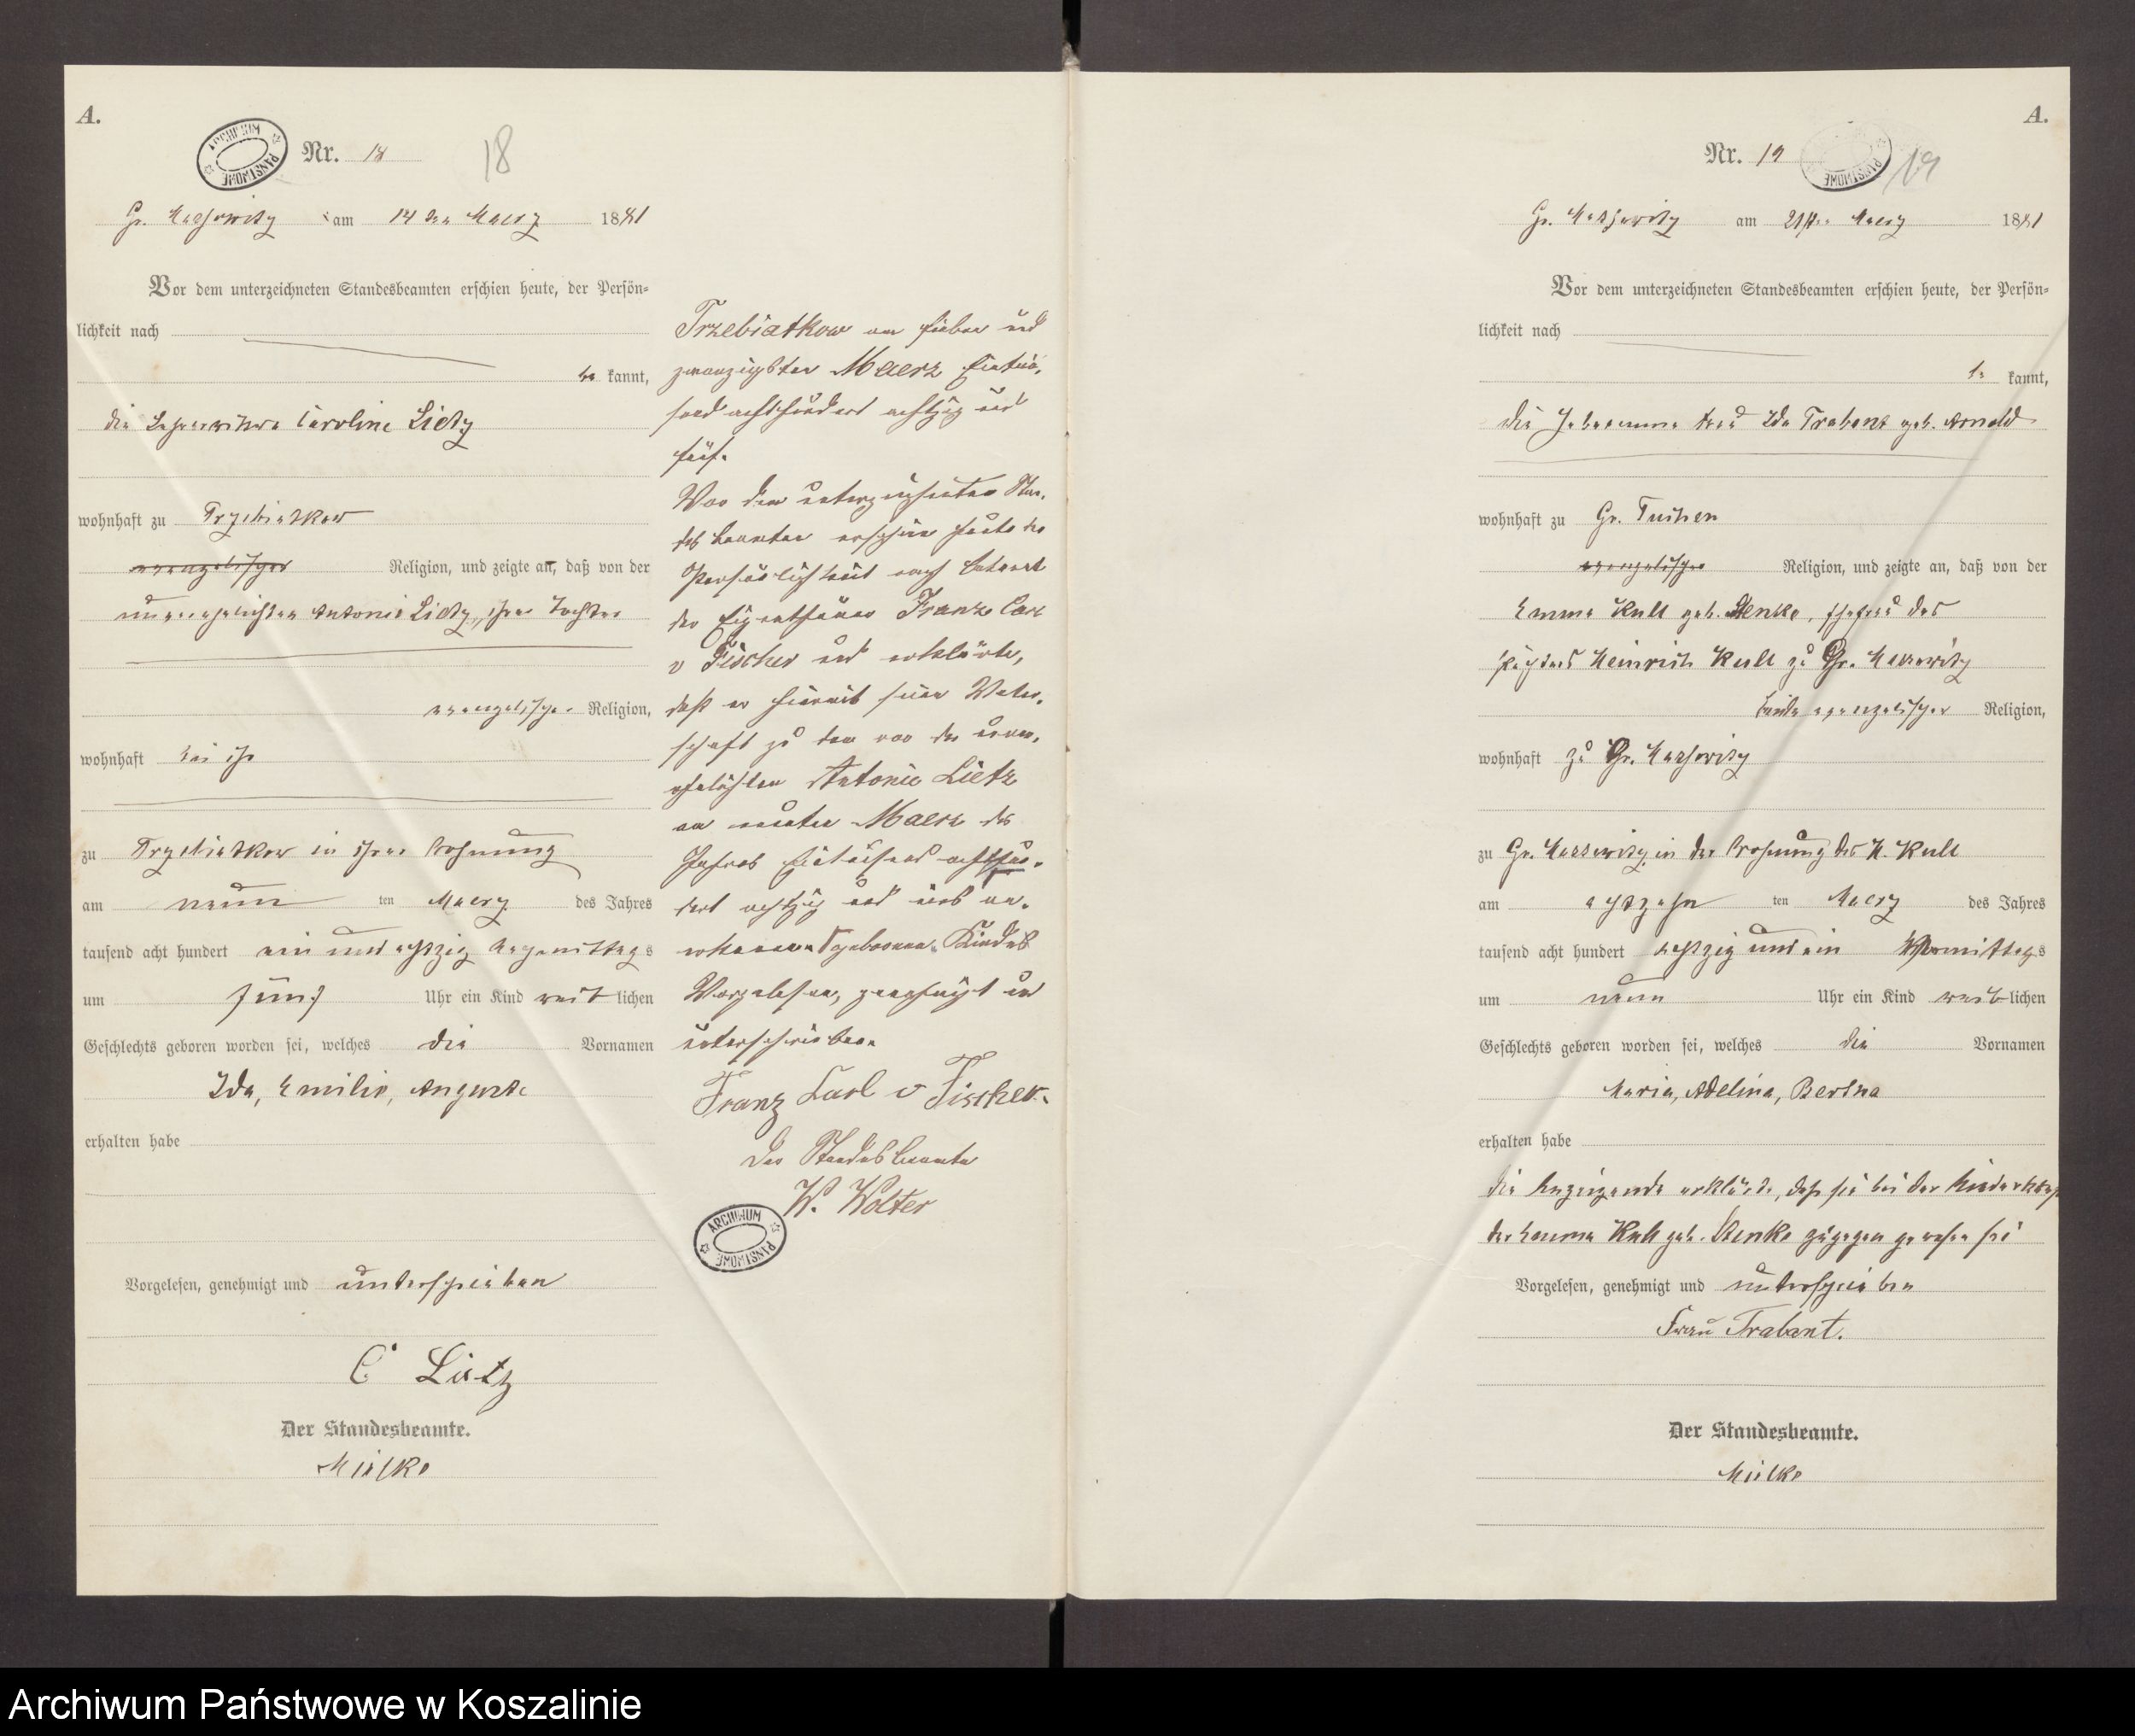 A.
ARCHIWUM PAŃSTWOWE
Nr. 18
18
Gr. Massowitz am 14 ten Maerz 1881
Vor dem unterzeichneten Standesbeamten erschien heute, der Persön-
lichkeit nach
be kannt,
die Caroline Lietz
wohnhaft zu Trzebiatkow
evangelischer Religion, und zeigte an, daß von der
unverehelichten Antonie Lietz, ihrer Tochter
evangelischer Religion,
wohnhaft bei ihr
zu Trzebiatkow in ihrer Wohnung
am neun ten Maerz des Jahres
tausend acht hundert ein und achtzig Nachmittags
um fünf Uhr ein Kind weib lichen
Geschlechts geboren worden sei, welches die Vornamen
Ida, Emilie, Auguste
erhalten habe
Vorgelesen, genehmigt und unterschrieben
C Lietz
Der Standesbeamte.
Mielke
Trzebiatkow am sieben und
zwanzigsten Maerz Eintau-
send achthundert achtzig und
fünf.
Vor dem unterzeichneten Stan-
desbeamten erschien heute der
Persönlichkeit nach bekannt
der Eigenthümer Franz Carl
v Fischer und erklärte,
daß er hiermit seine Vater-
schaft zu dem von der unver-
ehelichten Antonie Lietz
am neunten Maerz des
Jahres Eintausend achthun-
dert achtzig und eins an-
erkannten geborenen Kindes
Vorgelesen, genehmigt und
unterschrieben
Franz Carl v Fischer.
Der Standesbeamte
W. Wolter
ARCHIWUM PAŃSTWOWE
A.
Nr. 19
PAŃSTWOWE
19
Gr. Massowitz am 21ten Maerz 1881
Vor dem unterzeichneten Standesbeamten erschien heute, der Persön-
lichkeit nach
be kannt,
die Hebeamme Frau Ida Trabant geb. Arnold
wohnhaft zu Gr. Tuchen
evangelischer Religion, und zeigte an, daß von der
Emma Kull geb. Stenke, Ehefrau des
Pächters Heinrich Kull zu Gr. Massowitz
beide evangelischer Religion,
wohnhaft zu Gr. Massowitz
zu Gr. Massowitz in der Wohnung des H. Kull
am achtzehn ten Maerz des Jahres
tausend acht hundert achtzig und ein Vormittags
um neun Uhr ein Kind weib lichen
Geschlechts geboren worden sei, welches die Vornamen
Maria, Adelina, Bertha
erhalten habe
die Anzeigende erklärte, daß sie bei der Niederkunft
der Emma Kull geb. Stenke zugegen gewesen sei
Vorgelesen, genehmigt und unterschrieben
Frau Trabant.
Der Standesbeamte.
Mielke
Archiwum Państwowe w Koszalinie